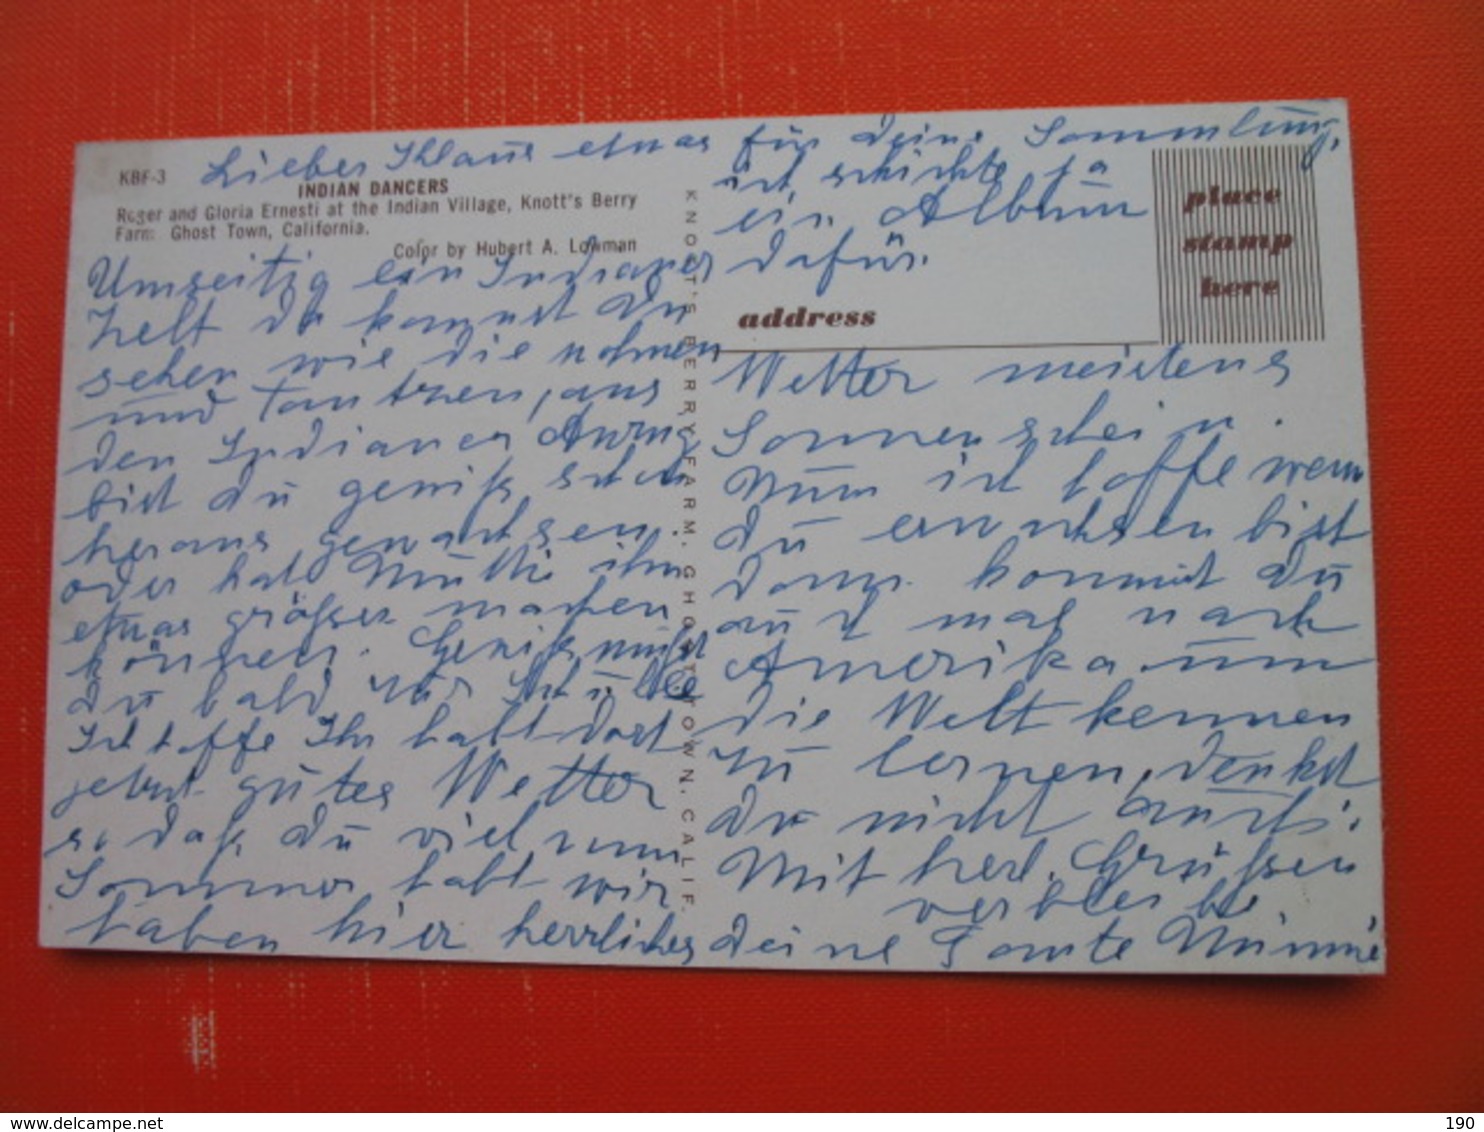 Lieber Khlaus etwas für deine Sammlung,
ich schickte ja
ein Album
dafür.
KBF-3
INDIAN DANCERS
Roger and Gloria Ernesti at the Indian Village, Knott's Berry
Farm Ghost Town, California.
Color by Hubert A. Lowman
Umseitig ein Indianer
Zelt da kannst du
sehen wie die nohmen
und Tantzen, aus
den Indianer Anzug
bist du gewiß schon
heraus gewachsen
oder hat Mutti ihn
etwas größer machen
können. Gewiß mußt
du bald zur Schule
Ich hoffe Ihr habt dort
jetzt gutes Wetter
so daß du viel zum
Sommer habt wir
haben hier herrliches
KNOTT'S BERRY FARM, GHOST TOWN, CALIF.
place
stamp
here
address
Wetter meistens
Sonnenschein.
Nun ich hoffe wenn
du erwachsen bist
dann kommst du
auch mal nach
Amerika um
die Welt kennen
zu lernen, denkst
du nicht auch.
Mit herzl. Grüßen
verbleibe
deine Tante Mimmie
delcampe.net
190